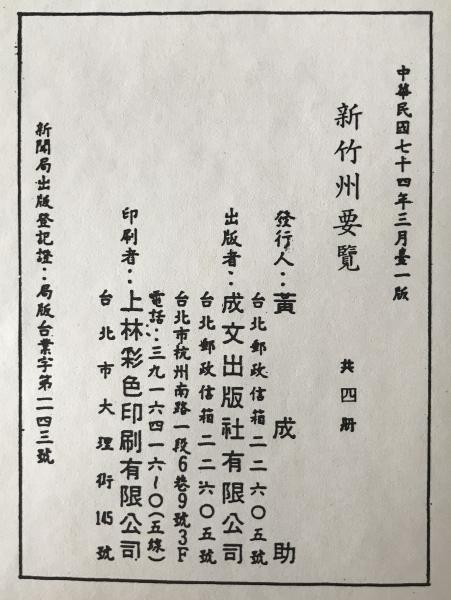 中華民國七十四年三月臺一版
新竹州要覽 共四册
發行人：黃成助
台北郵政信箱二二六〇五號
出版者：成文出版社有限公司
台北郵政信箱二二六〇五號
台北市杭州南路一段6巷9號3F
電話：三九一六四一六～〇（五線）
印刷者：上林彩色印刷有限公司
台北市大理街145號
新聞局出版登記證：局版台業字第一一四三號